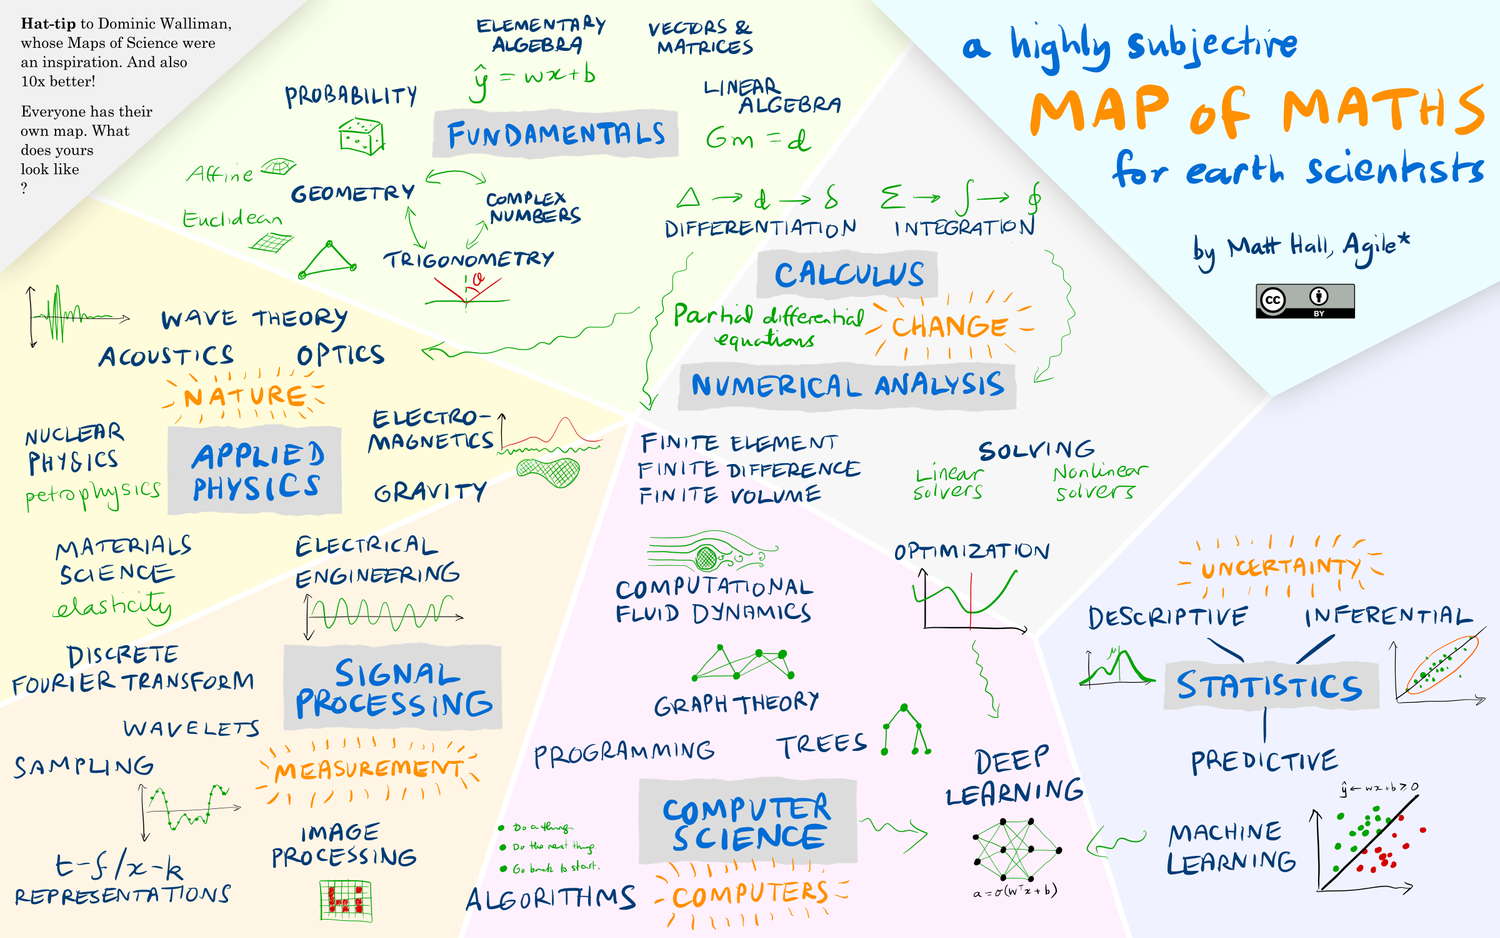 Hat-tip to Dominic Walliman,
whose Maps of Science were
an inspiration. And also
10x better!
Everyone has their
own map. What
does yours
look like
?
a highly subjective
MAP of MATHS
for earth scientists
by Matt Hall, Agile*
cc
BY
ELEMENTARY
ALGEBRA
ŷ = wx+b
VECTORS &
MATRICES
PROBABILITY
LINEAR
ALGEBRA
Gm = d
FUNDAMENTALS
Affine
GEOMETRY
Euclidean
COMPLEX
NUMBERS
TRIGONOMETRY
θ
Δ → d → δ
DIFFERENTIATION
Σ → ∫ → ∮
INTEGRATION
CALCULUS
Partial differential
equations
CHANGE
NUMERICAL ANALYSIS
FINITE ELEMENT
FINITE DIFFERENCE
FINITE VOLUME
SOLVING
Linear
solvers
Nonlinear
solvers
OPTIMIZATION
WAVE THEORY
ACOUSTICS
OPTICS
NATURE
ELECTRO-
MAGNETICS
NUCLEAR
PHYSICS
petrophysics
APPLIED
PHYSICS
GRAVITY
MATERIALS
SCIENCE
elasticity
ELECTRICAL
ENGINEERING
DISCRETE
FOURIER TRANSFORM
SIGNAL
PROCESSING
WAVELETS
SAMPLING
MEASUREMENT
IMAGE
PROCESSING
Hi
t-f/x-k
REPRESENTATIONS
COMPUTATIONAL
FLUID DYNAMICS
GRAPH THEORY
PROGRAMMING
TREES
DEEP
LEARNING
a = σ(wᵀx + b)
COMPUTER
SCIENCE
Do a thing.
Do the next thing
Go back to start.
ALGORITHMS
COMPUTERS
UNCERTAINTY
DESCRIPTIVE
INFERENTIAL
μ
STATISTICS
PREDICTIVE
MACHINE
LEARNING
ŷ ← wx+b > 0